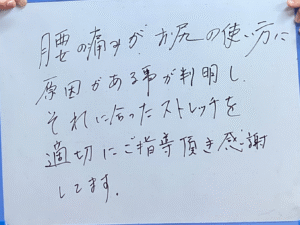 腰の痛みが、お尻の使い方に
原因がある事が判明し、
それに合ったストレッチを
適切にご指導頂き感謝
してます。